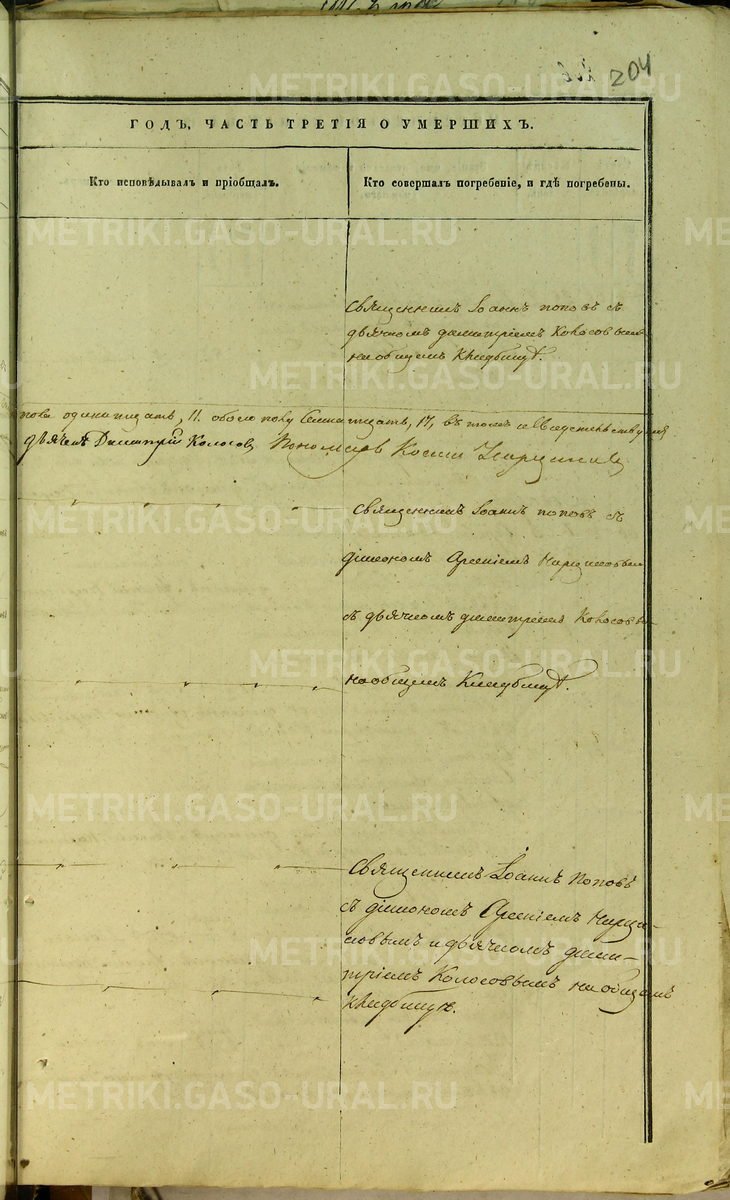 204
ГОДЪ, ЧАСТЬ ТРЕТІЯ О УМЕРШИХЪ.
Кто исповѣдывалъ и пріобщалъ.
Кто совершалъ погребеніе, и гдѣ погребены.
Священникъ Іоаннъ поповъ съ
дьячкомъ димитріемъ Колосовымъ
на общемъ Кладбищѣ.
пола одинатцать, 11. обоего полу Семнатцать, 17, въ томъ и Свидетельствуемъ
дьячекъ Димитрій Колосовъ Пономарь Косма
Священникъ Іоаннъ поповъ съ
діякономъ Арсеніемъ
съ дьячкомъ димитріемъ Колосовы-
на общемъ Кладбищѣ.
Священникъ Іоаннъ Поповъ
съ діякономъ Арсеніемъ
и дьячкомъ дими-
тріемъ Колосовымъ на общемъ
кладбищѣ.
METRIKI.GASO-URAL.RU